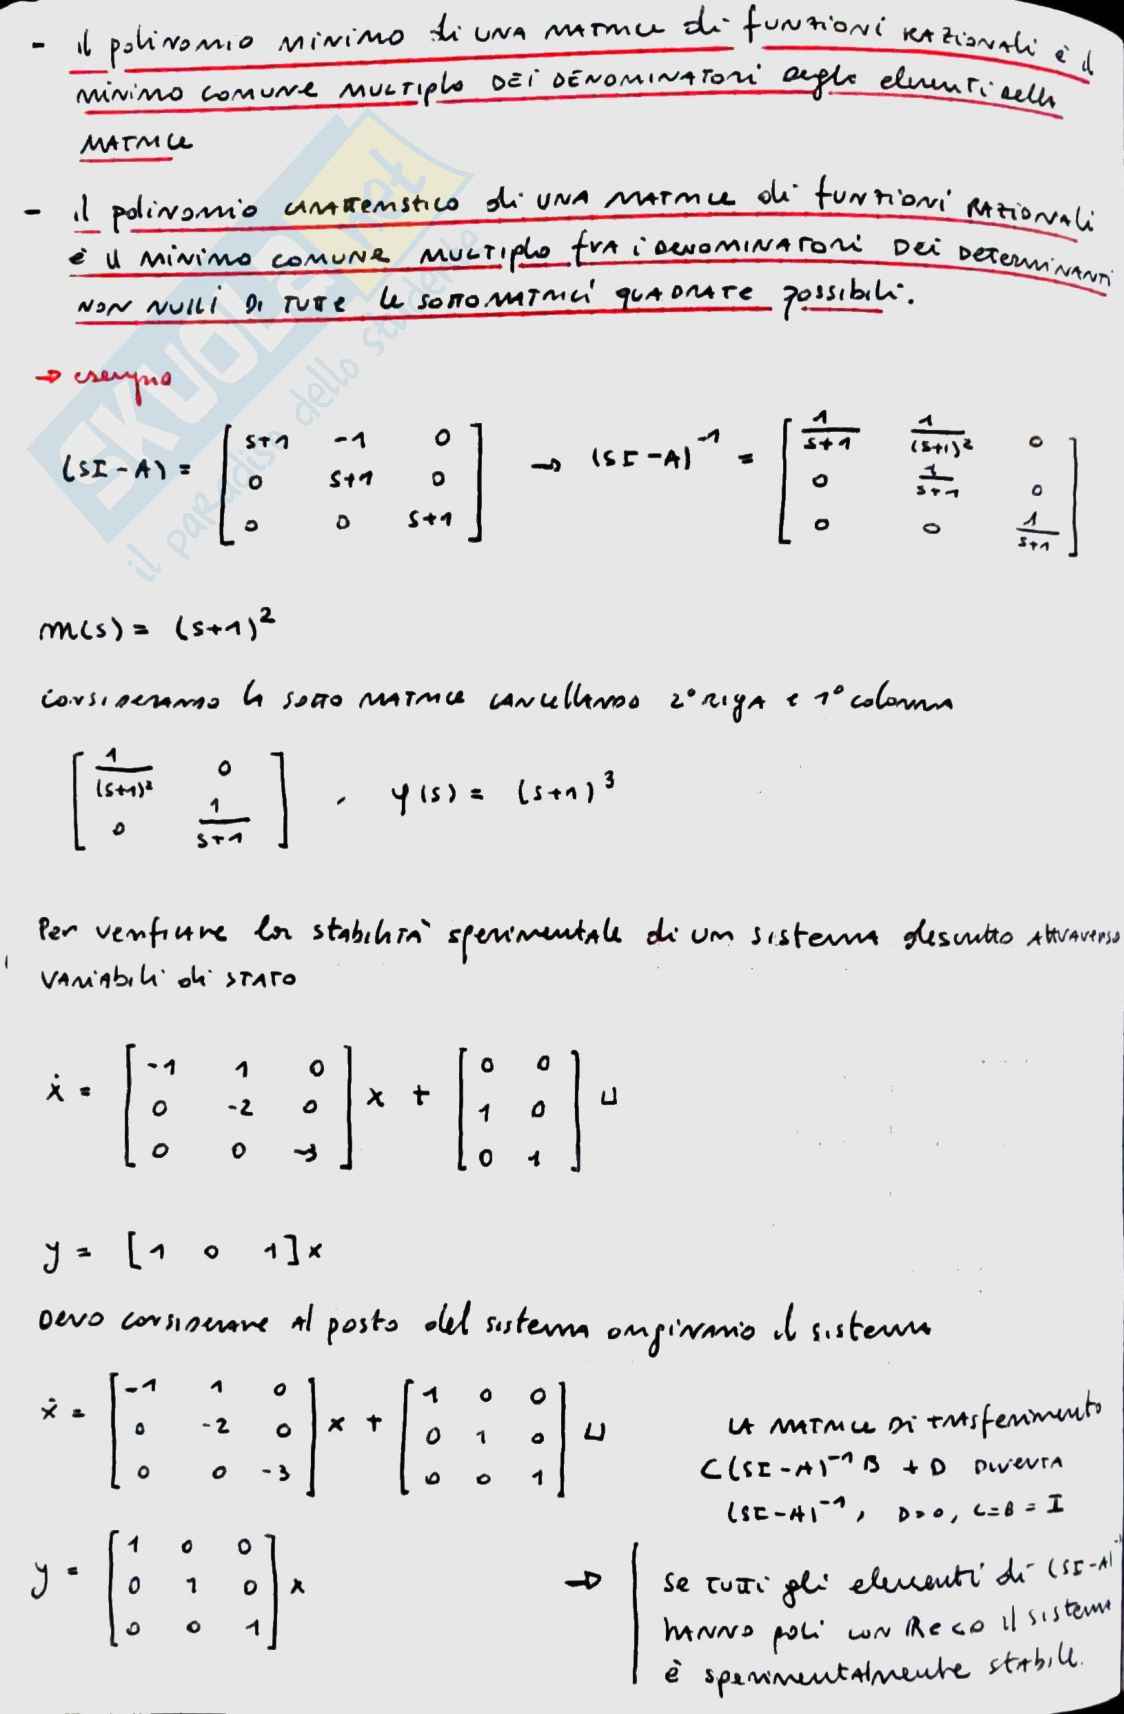 - il polinomio minimo di una matrice di funzioni razionali è il
minimo comune multiplo dei denominatori degli elementi della
matrice
- il polinomio caratteristico di una matrice di funzioni razionali
è il minimo comune multiplo fra i denominatori dei determinanti
non nulli di tutte le sottomatrici quadrate possibili.
→ esempio
(SI-A) = [ s+1 -1 0
0 s+1 0
0 0 s+1 ] → (SI-A)⁻¹ = [ 1/(s+1) 1/(s+1)² 0
0 1/(s+1) 0
0 0 1/(s+1) ]
m(s) = (s+1)²
consideriamo la sottomatrice cancellando 2° riga e 1° colonna
[ 1/(s+1)² 0
0 1/(s+1) ] , φ(s) = (s+1)³
Per verificare la stabilità sperimentale di un sistema descritto attraverso
variabili di stato
ẋ = [ -1 1 0
0 -2 0
0 0 -3 ] x + [ 0 0
1 0
0 1 ] u
y = [1 0 1] x
Devo considerare al posto del sistema originario il sistema
ẋ = [ -1 1 0
0 -2 0
0 0 -3 ] x + [ 1 0 0
0 1 0
0 0 1 ] u
La matrice di trasferimento
C(SI-A)⁻¹B + D diventa
(SI-A)⁻¹, D=0, C=B=I
y = [ 1 0 0
0 1 0
0 0 1 ] x
→ se tutti gli elementi di (SI-A)⁻¹
hanno poli con Re<0 il sistema
è sperimentalmente stabile.
SKUOLA.net
il paradiso dello studente